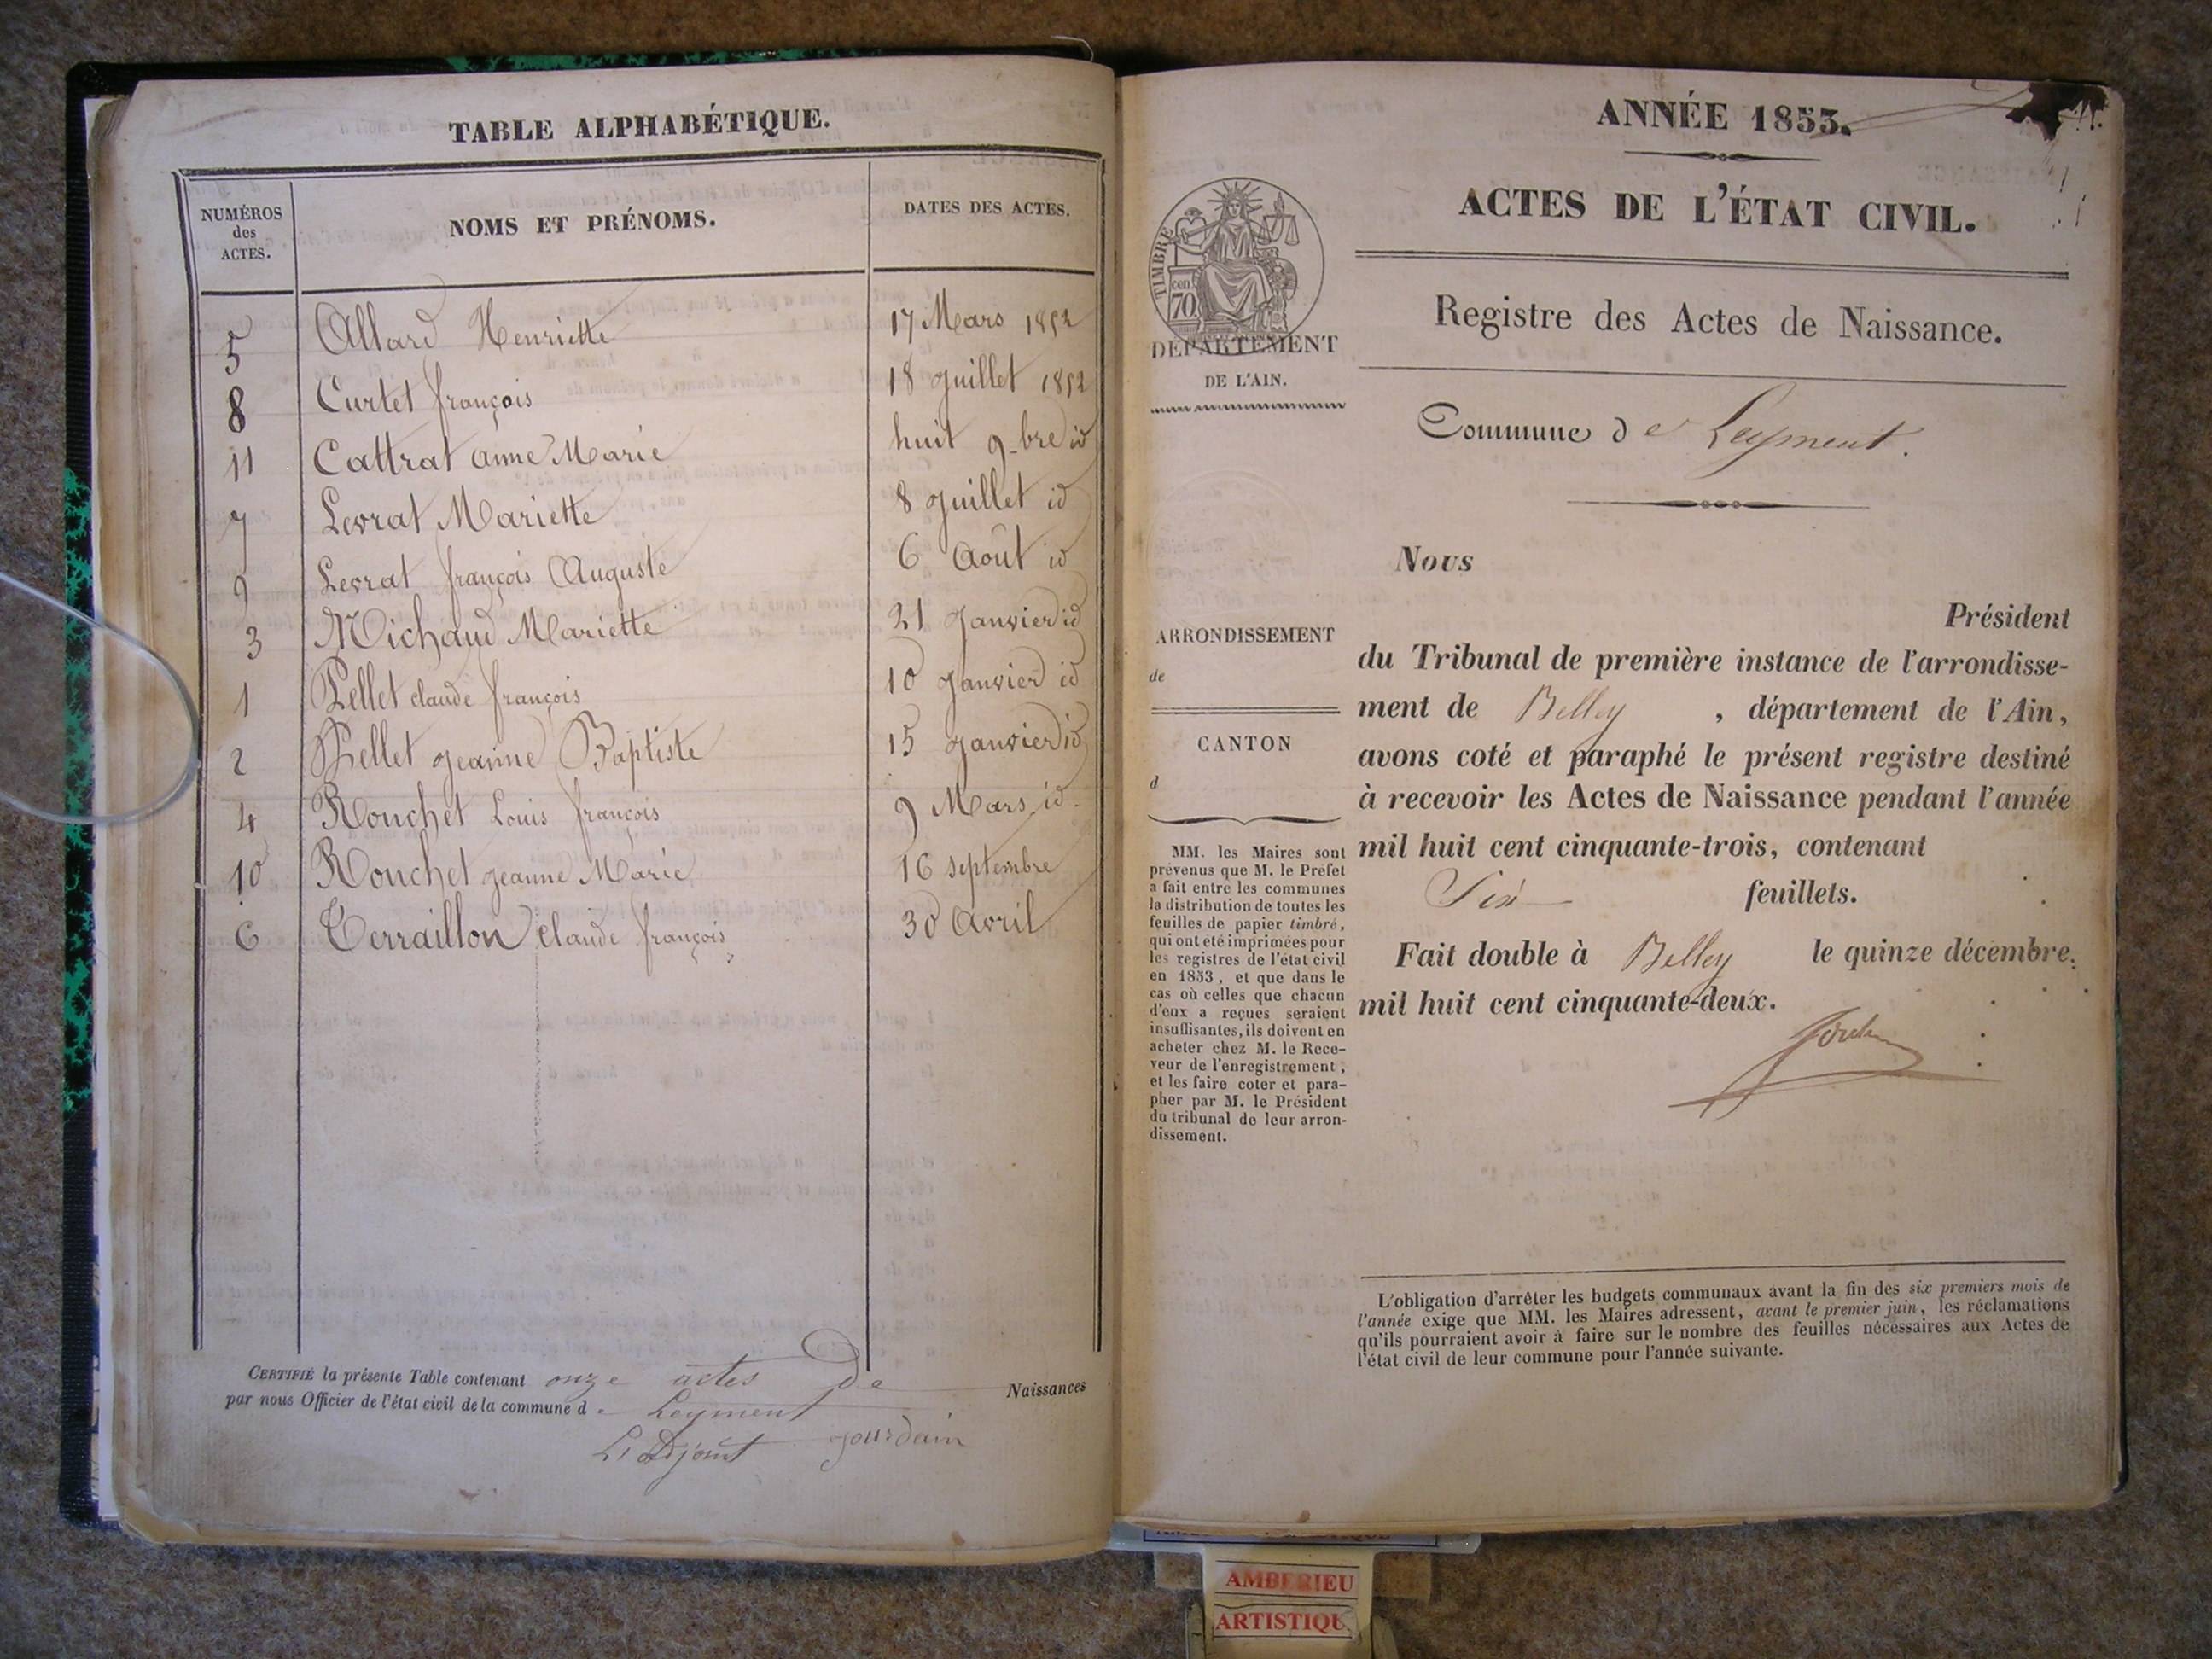 TABLE ALPHABÉTIQUE.
NUMÉROS
des
ACTES.
NOMS ET PRÉNOMS.
DATES DES ACTES.
5 Allard Henriette 17 Mars 1852
8 Curtet françois 18 juillet 1852
11 Cattrat anne Marie huit 9-bre id
7 Levrat Mariette 8 juillet id
9 Levrat françois Auguste 6 Août id
3 Michaud Mariette 21 Janvier id
1 Pellet claude françois 10 Janvier id
2 Pellet jeanne Baptiste 15 janvier id
4 Rouchet Louis françois 9 Mars id.
10 Rouchet jeanne Marie 16 septembre
6 Terraillon claude françois 30 Avril
CERTIFIÉ la présente Table contenant onze actes De Naissances
par nous Officier de l'état civil de la commune de Leyment
L'Adjoint Jourdain
ANNÉE 1853.
ACTES DE L'ÉTAT CIVIL.
Registre des Actes de Naissance.
Commune de Leyment.
TIMBRE
cen
70
DÉPARTEMENT
DE L'AIN.
ARRONDISSEMENT
de
CANTON
d
MM. les Maires sont
prévenus que M. le Préfet
a fait entre les communes
la distribution de toutes les
feuilles de papier timbré,
qui ont été imprimées pour
les registres de l'état civil
en 1853, et que dans le
cas où celles que chacun
d'eux a reçues seraient
insuffisantes, ils doivent en
acheter chez M. le Rece-
veur de l'enregistrement,
et les faire coter et para-
pher par M. le Président
du tribunal de leur arron-
dissement.
Nous
Président
du Tribunal de première instance de l'arrondisse-
ment de Belley , département de l'Ain,
avons coté et paraphé le présent registre destiné
à recevoir les Actes de Naissance pendant l'année
mil huit cent cinquante-trois, contenant
Six feuillets.
Fait double à Belley le quinze décembre
mil huit cent cinquante-deux.
L'obligation d'arrêter les budgets communaux avant la fin des six premiers mois de
l'année exige que MM. les Maires adressent, avant le premier juin, les réclamations
qu'ils pourraient avoir à faire sur le nombre des feuilles nécessaires aux Actes de
l'état civil de leur commune pour l'année suivante.
AMBERIEU
ARTISTIQU